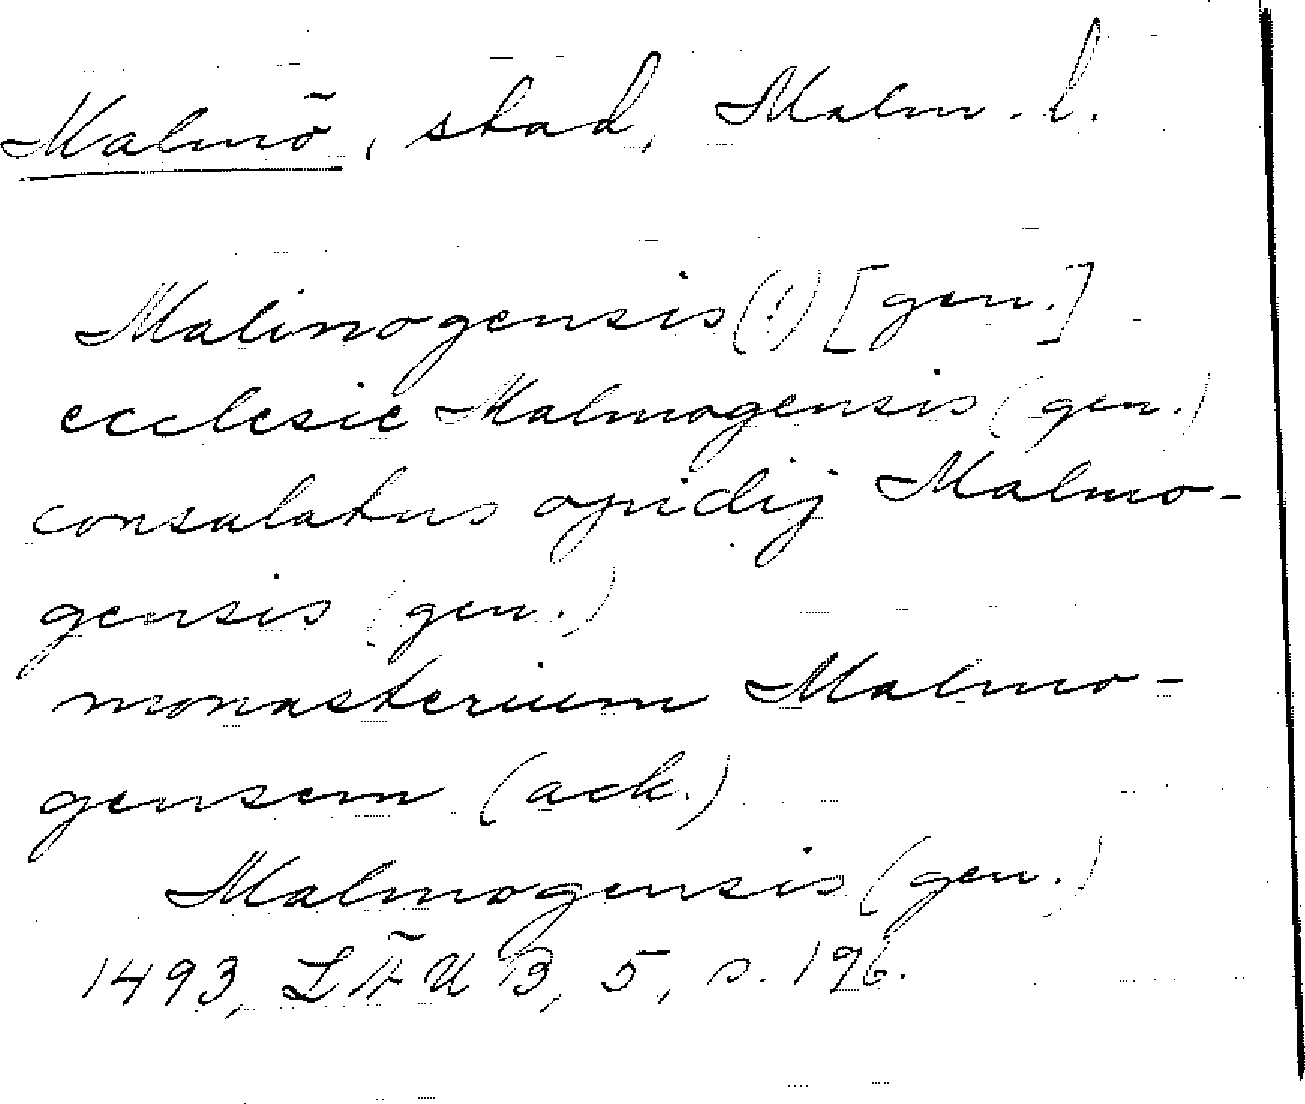 Malmö, stad, Malm. l.
Malinogensis (!) [gen.]
ecclesie Malmogensis (gen.)
consulatus opidij Malmo-
gensis (gen.)
monasterium Malmo-
gensem (ack.)
Malmogensis (gen.)
1493, LÄUB, 5, s. 196.